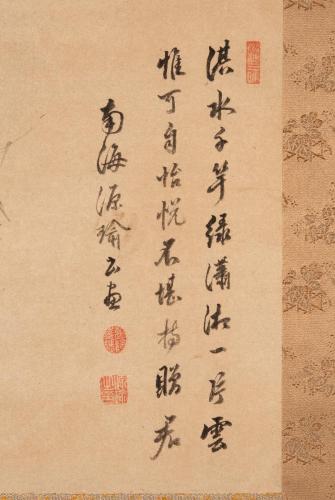 淇水千竿綠瀟湘一片雲
惟可自怡悅不堪持贈君
南海源瑜画